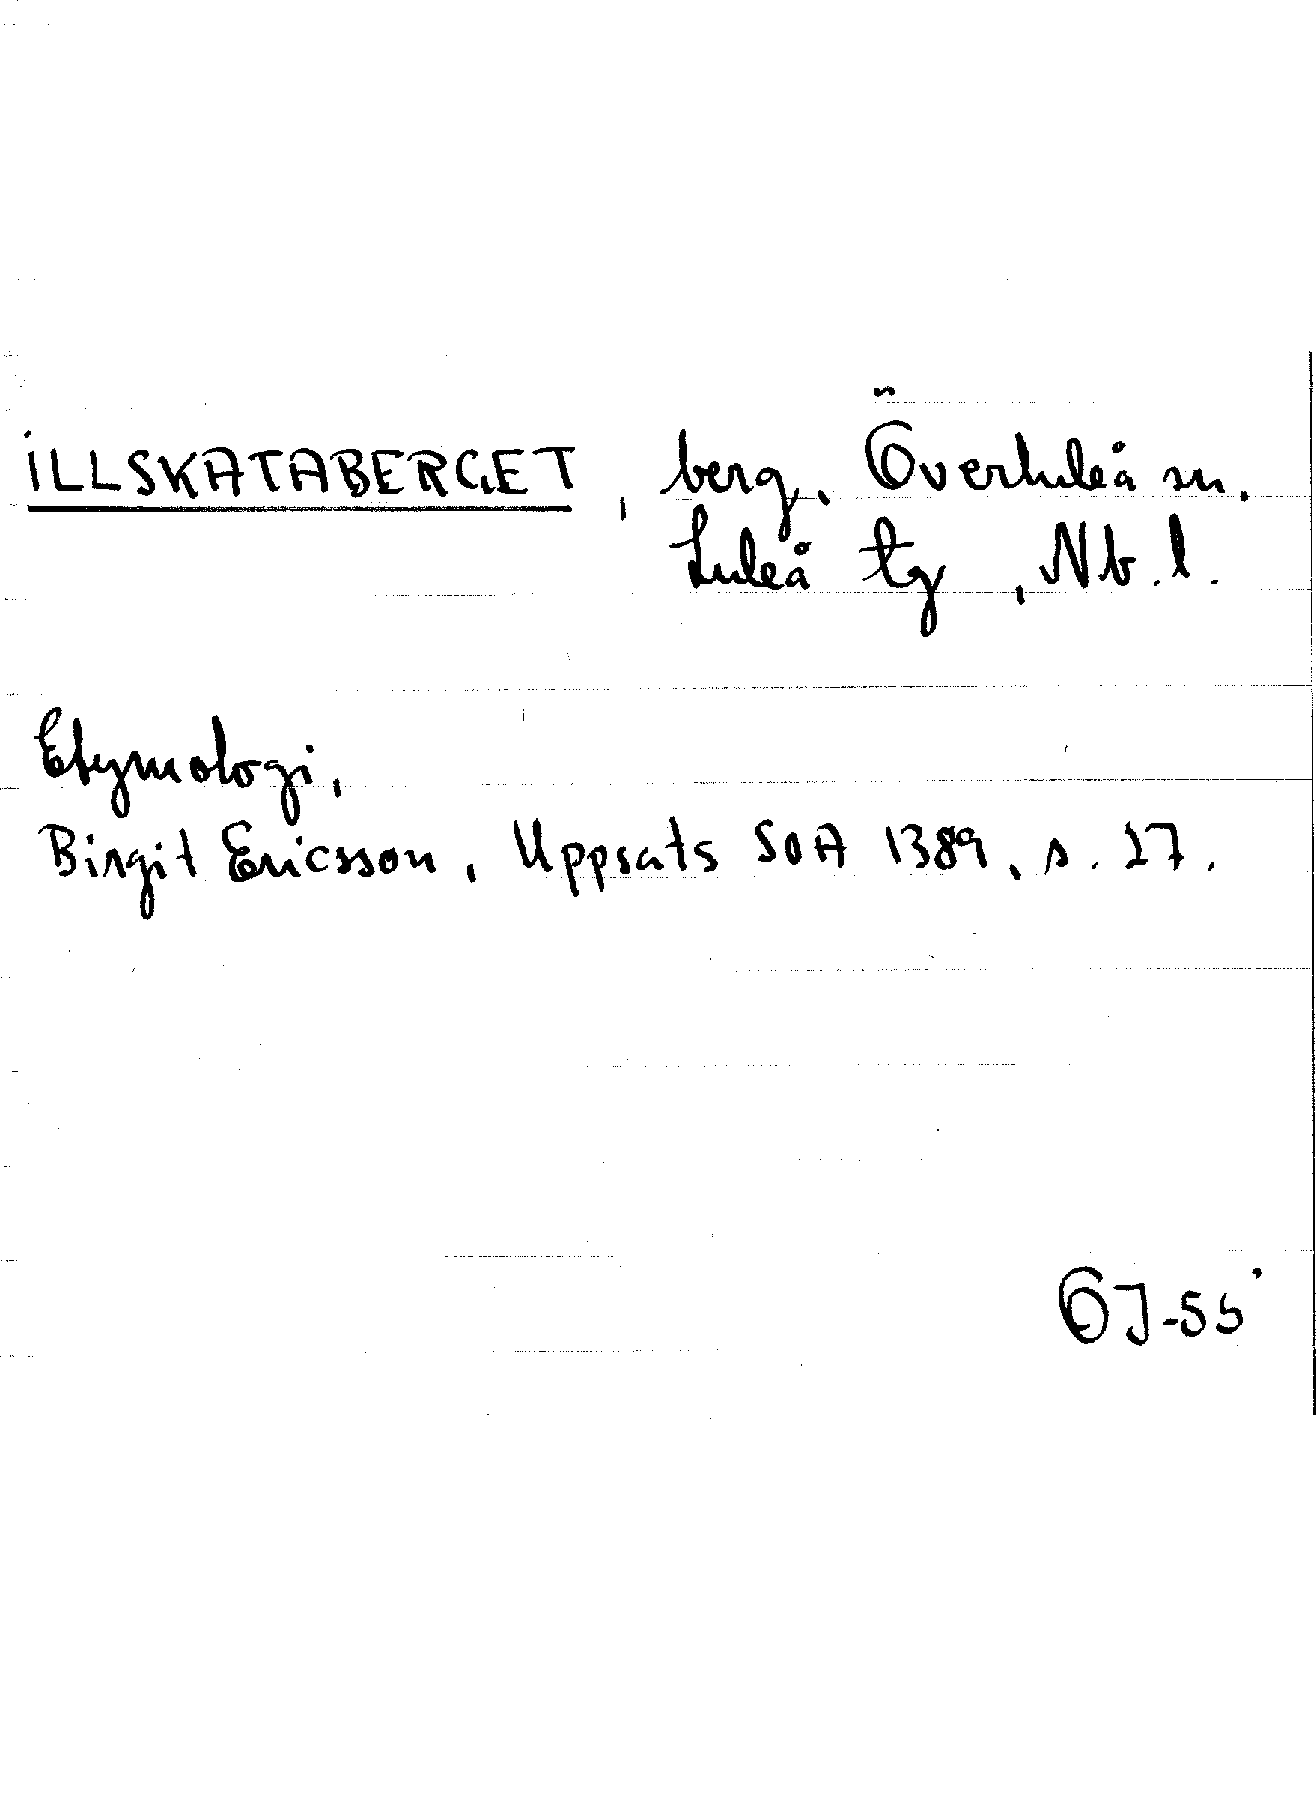 ILLSKATABERGET, berg, Överluleå sn.
Luleå tg, Nb.l.
Etymologi,
Birgit Ericsson, Uppsats SOA 1389, s. 27.
ÖJ-55